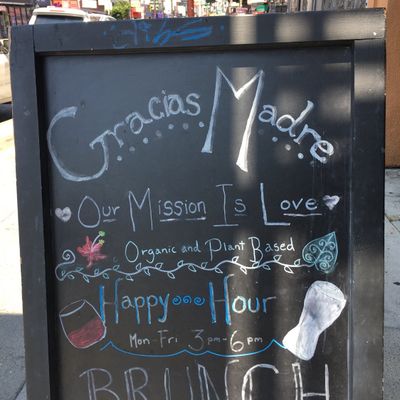 Gracias Madre
Our Mission Is Love
Organic and Plant Based
Happy Hour
Mon-Fri 3pm-6pm
BRUNCH